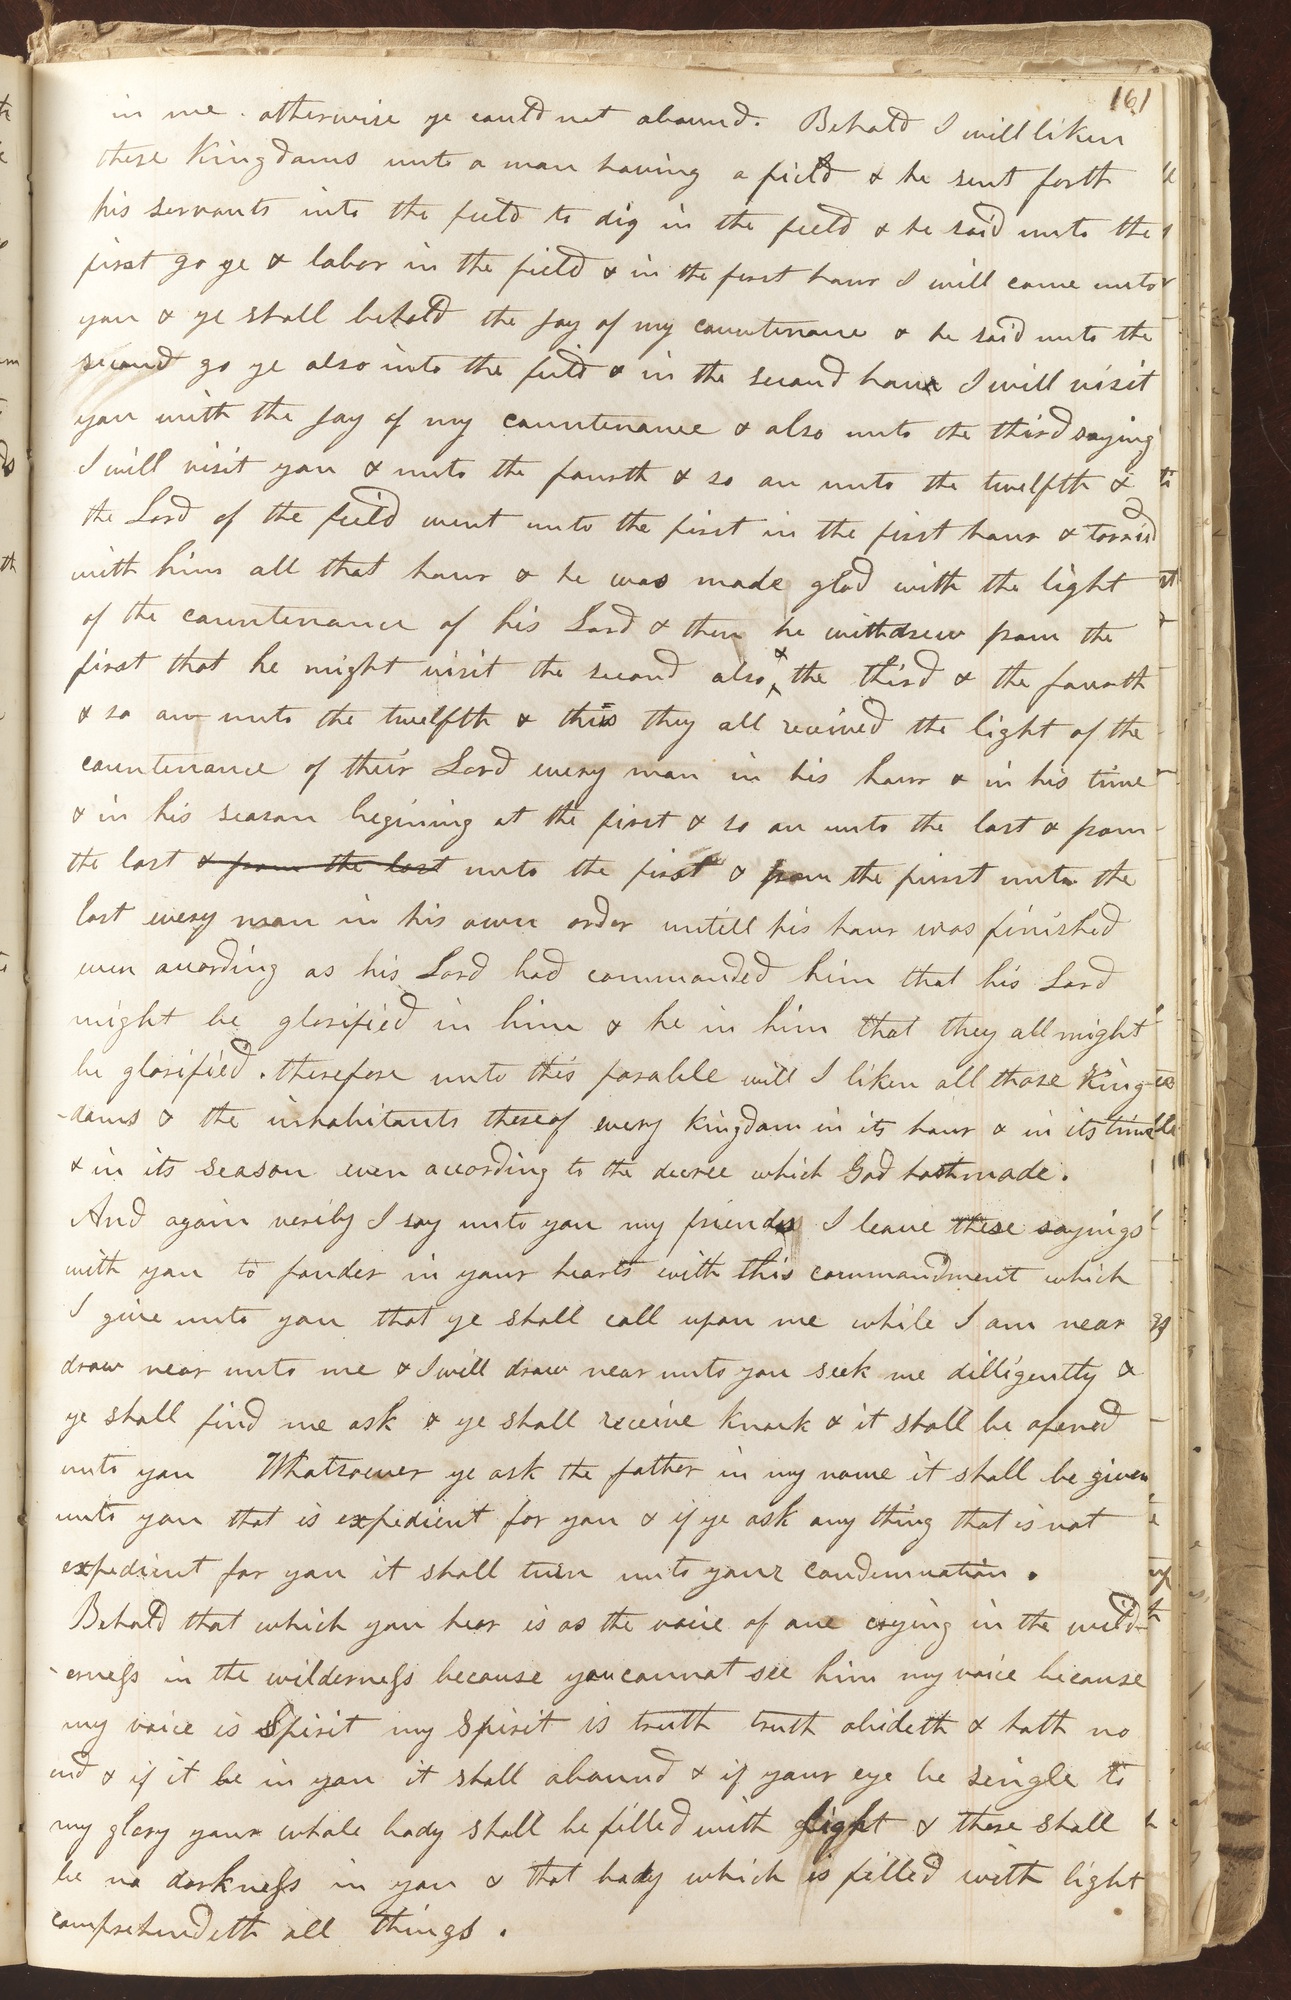 161
in me. otherwise ye could not abound. Behold I will liken
these Kingdoms unto a man having a field & he sent forth
his servants into the field to dig in the field & he said unto the
first go ye & labor in the field & in the first hour I will come unto
you & ye shall behold the joy of my countenance & he said unto the
second go ye also into the field & in the second hour I will visit
you with the joy of my countenance & also unto the third saying
I will visit you & unto the fourth & so on unto the twelfth &
the Lord of the field went unto the first in the first hour & tarried
with him all that hour & he was made glad with the light
of the countenance of his Lord & then he withdrew from the
first that he might visit the second also & the third & the fourth
& so on unto the twelfth & this they all received the light of the
countenance of their Lord every man in his hour & in his time
& in his season begining at the first & so on unto the last & from
the last & from the last unto the first & from the first unto the
last every man in his own order untill his hour was finished
even according as his Lord had commanded him that his Lord
might be glorified in him & he in him that they all might
be glorified. therefore unto this parable will I liken all those King
-doms & the inhabitants thereof every kingdom in its hour & in its time
& in its season even according to the decree which God hath made.
And again verily I say unto you my friends I leave these sayings
with you to ponder in your hearts with this commandment which
I give unto you that ye shall call upon me while I am near
draw near unto me & I will draw near unto you seek me dilligently &
ye shall find me ask & ye shall receive knock & it shall be opened
unto you Whatsoever ye ask the father in my name it shall be given
unto you that is expedient for you & if ye ask any thing that is not
expedient for you it shall turn unto your condemnation.
Behold that which you hear is as the voice of one crying in the wild-
-erness in the wilderness because you cannot see him my voice because
my voice is Spirit my Spirit is truth truth abideth & hath no
end & if it be in you it shall abound & if your eye be single to
my glory your whole body shall be filled with light & there shall
be no darkness in you & that body which is filled with light
comprehendeth all things.